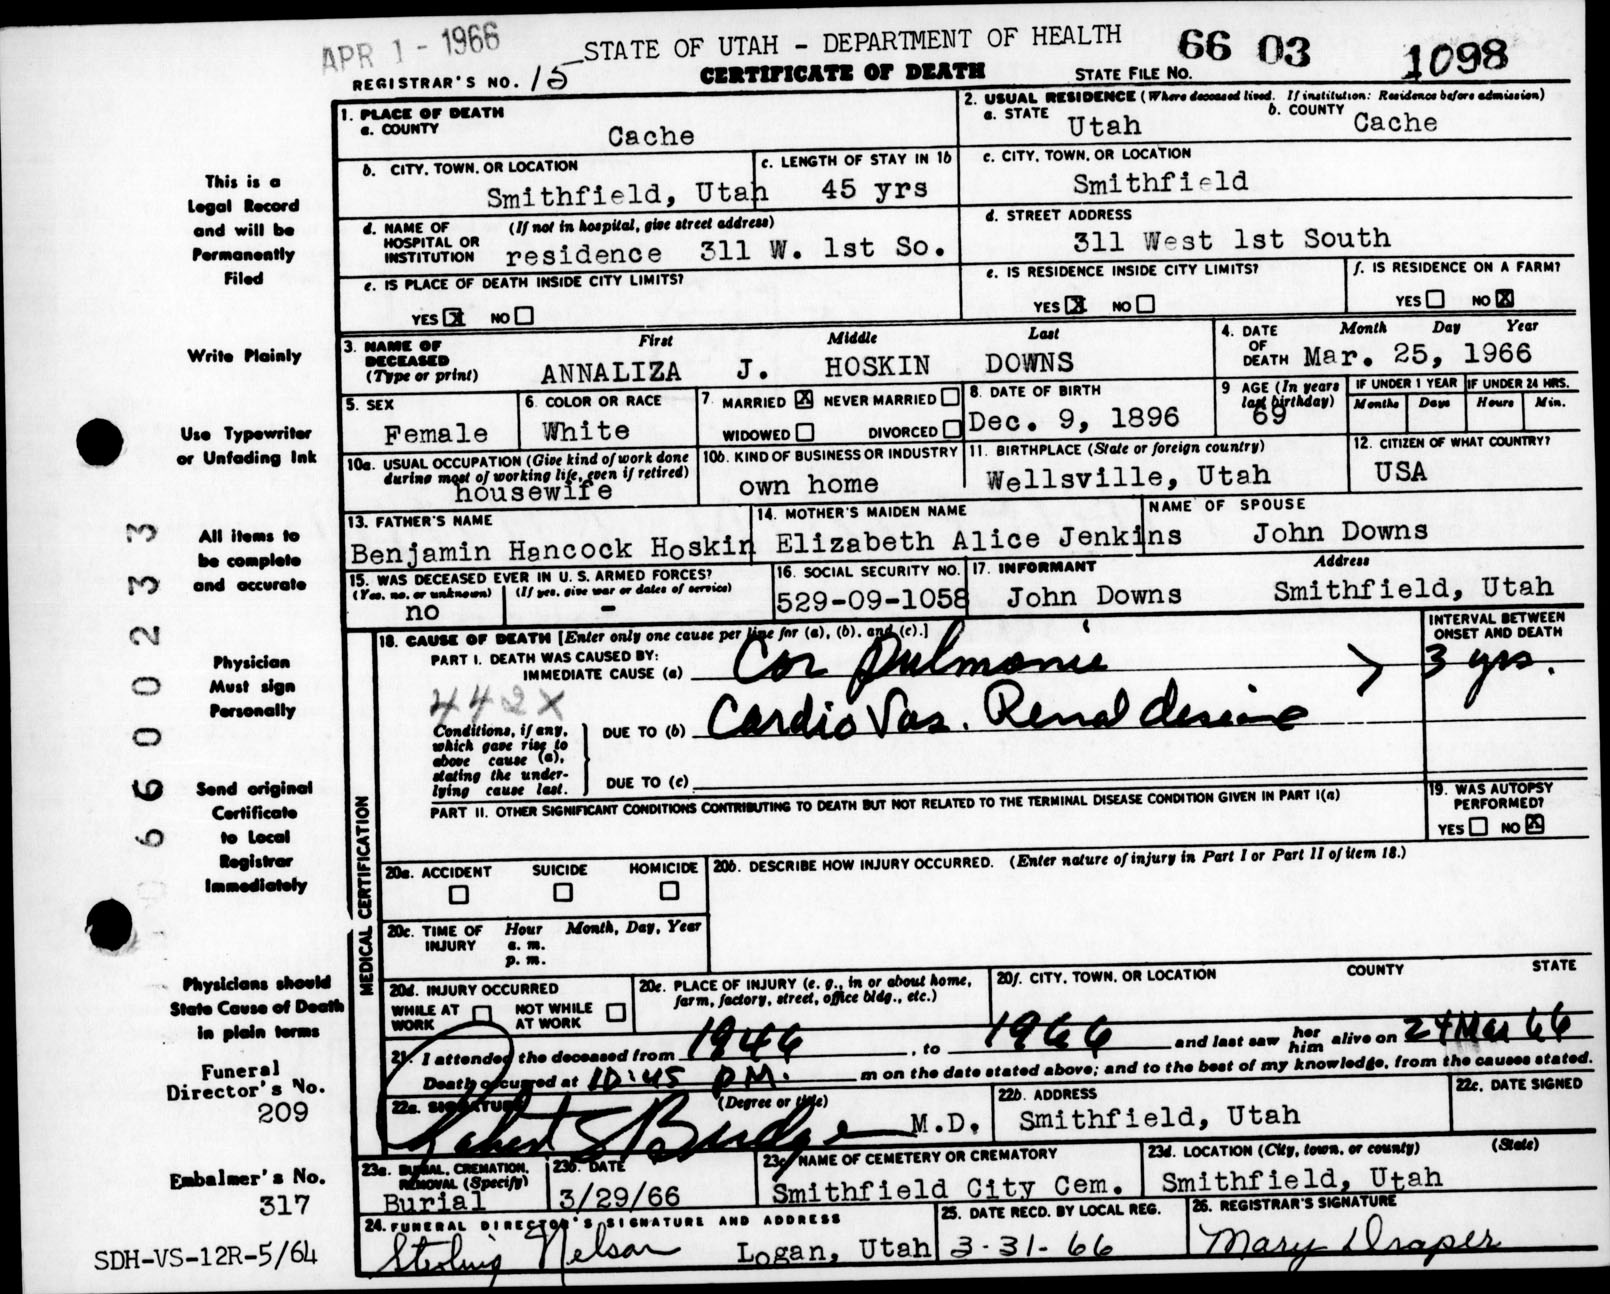 APR 1 - 1966
STATE OF UTAH - DEPARTMENT OF HEALTH 66 03 1098
REGISTRAR'S NO. 15 CERTIFICATE OF DEATH STATE FILE NO.
1. PLACE OF DEATH
a. COUNTY Cache
2. USUAL RESIDENCE (Where deceased lived. If institution: Residence before admission)
a. STATE Utah b. COUNTY Cache
b. CITY, TOWN, OR LOCATION Smithfield, Utah
c. LENGTH OF STAY IN 1b 45 yrs
c. CITY, TOWN, OR LOCATION Smithfield
d. NAME OF HOSPITAL OR INSTITUTION (If not in hospital, give street address) residence 311 W. 1st So.
d. STREET ADDRESS 311 West 1st South
e. IS PLACE OF DEATH INSIDE CITY LIMITS?
YES X NO
e. IS RESIDENCE INSIDE CITY LIMITS?
YES X NO
f. IS RESIDENCE ON A FARM?
YES NO X
3. NAME OF DECEASED (Type or print)
First Middle Last
ANNALIZA J. HOSKIN DOWNS
4. DATE OF DEATH Month Day Year
Mar. 25, 1966
5. SEX Female
6. COLOR OR RACE White
7. MARRIED X NEVER MARRIED
WIDOWED DIVORCED
8. DATE OF BIRTH Dec. 9, 1896
9 AGE (In years last birthday) 69
IF UNDER 1 YEAR Months Days
IF UNDER 24 HRS. Hours Min.
10a. USUAL OCCUPATION (Give kind of work done during most of working life, even if retired) housewife
10b. KIND OF BUSINESS OR INDUSTRY own home
11. BIRTHPLACE (State or foreign country) Wellsville, Utah
12. CITIZEN OF WHAT COUNTRY? USA
13. FATHER'S NAME Benjamin Hancock Hoskin
14. MOTHER'S MAIDEN NAME Elizabeth Alice Jenkins
NAME OF SPOUSE John Downs
15. WAS DECEASED EVER IN U. S. ARMED FORCES?
(Yes, no, or unknown) no
(If yes, give war or dates of service) -
16. SOCIAL SECURITY NO. 529-09-1058
17. INFORMANT John Downs
Address Smithfield, Utah
MEDICAL CERTIFICATION
18. CAUSE OF DEATH [Enter only one cause per line for (a), (b), and (c).]
INTERVAL BETWEEN ONSET AND DEATH
PART I. DEATH WAS CAUSED BY:
IMMEDIATE CAUSE (a) Cor Pulmonie > 3 yrs.
442X
Conditions, if any, which gave rise to above cause (a), stating the underlying cause last.
DUE TO (b) Cardio Vas. Renal disease
DUE TO (c)
PART II. OTHER SIGNIFICANT CONDITIONS CONTRIBUTING TO DEATH BUT NOT RELATED TO THE TERMINAL DISEASE CONDITION GIVEN IN PART I(a)
19. WAS AUTOPSY PERFORMED?
YES NO X
20a. ACCIDENT SUICIDE HOMICIDE
20b. DESCRIBE HOW INJURY OCCURRED. (Enter nature of injury in Part I or Part II of item 18.)
20c. TIME OF INJURY Hour Month, Day, Year
a. m.
p. m.
20d. INJURY OCCURRED
WHILE AT WORK NOT WHILE AT WORK
20e. PLACE OF INJURY (e. g., in or about home, farm, factory, street, office bldg., etc.)
20f. CITY, TOWN, OR LOCATION COUNTY STATE
21. I attended the deceased from 1946, to 1966 and last saw her him alive on 24 Mar 66
Death occurred at 10:45 PM. m on the date stated above; and to the best of my knowledge, from the causes stated.
22a. SIGNATURE (Degree or title)
Robert S Budge M.D.
22b. ADDRESS Smithfield, Utah
22c. DATE SIGNED
23a. BURIAL, CREMATION, REMOVAL (Specify) Burial
23b. DATE 3/29/66
23c. NAME OF CEMETERY OR CREMATORY Smithfield City Cem.
23d. LOCATION (City, town, or county) (State) Smithfield, Utah
24. FUNERAL DIRECTOR'S SIGNATURE AND ADDRESS
Sterling Nelson Logan, Utah
25. DATE RECD. BY LOCAL REG. 3-31-66
26. REGISTRAR'S SIGNATURE
Mary Draper
This is a
Legal Record
and will be
Permanently
Filed
Write Plainly
Use Typewriter
or Unfading Ink
All items to
be complete
and accurate
Physician
Must sign
Personally
Send original
Certificate
to Local
Registrar
Immediately
Physicians should
State Cause of Death
in plain terms
Funeral
Director's No.
209
Embalmer's No.
317
SDH-VS-12R-5/64
66000233